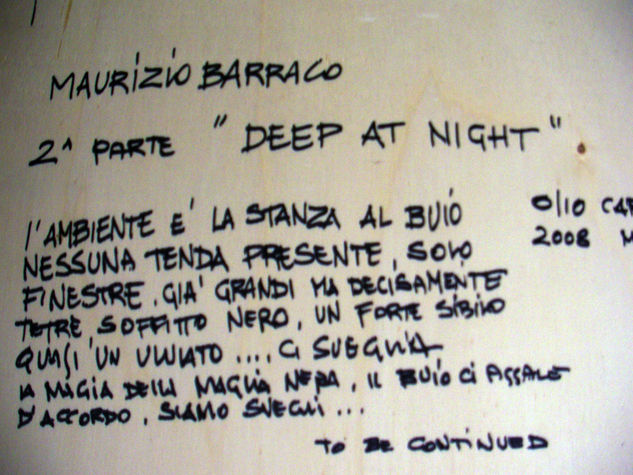 MAURIZIO BARRACO
2^ PARTE " DEEP AT NIGHT ".
l'AMBIENTE E' LA STANZA AL BUIO
NESSUNA TENDA PRESENTE, SOLO
FINESTRE, GIA' GRANDI MA DECISAMENTE
TETRE SOFFITTO NERO, UN FORTE SIBILO
QUASI UN ULULATO .... CI SVEGLIA,
LA MAGIA DELLA MAGLIA NERA, IL BUIO CI ASSALE
D'ACCORDO, SIAMO SVEGLI ...
TO BE CONTINUED
OlIO
2008